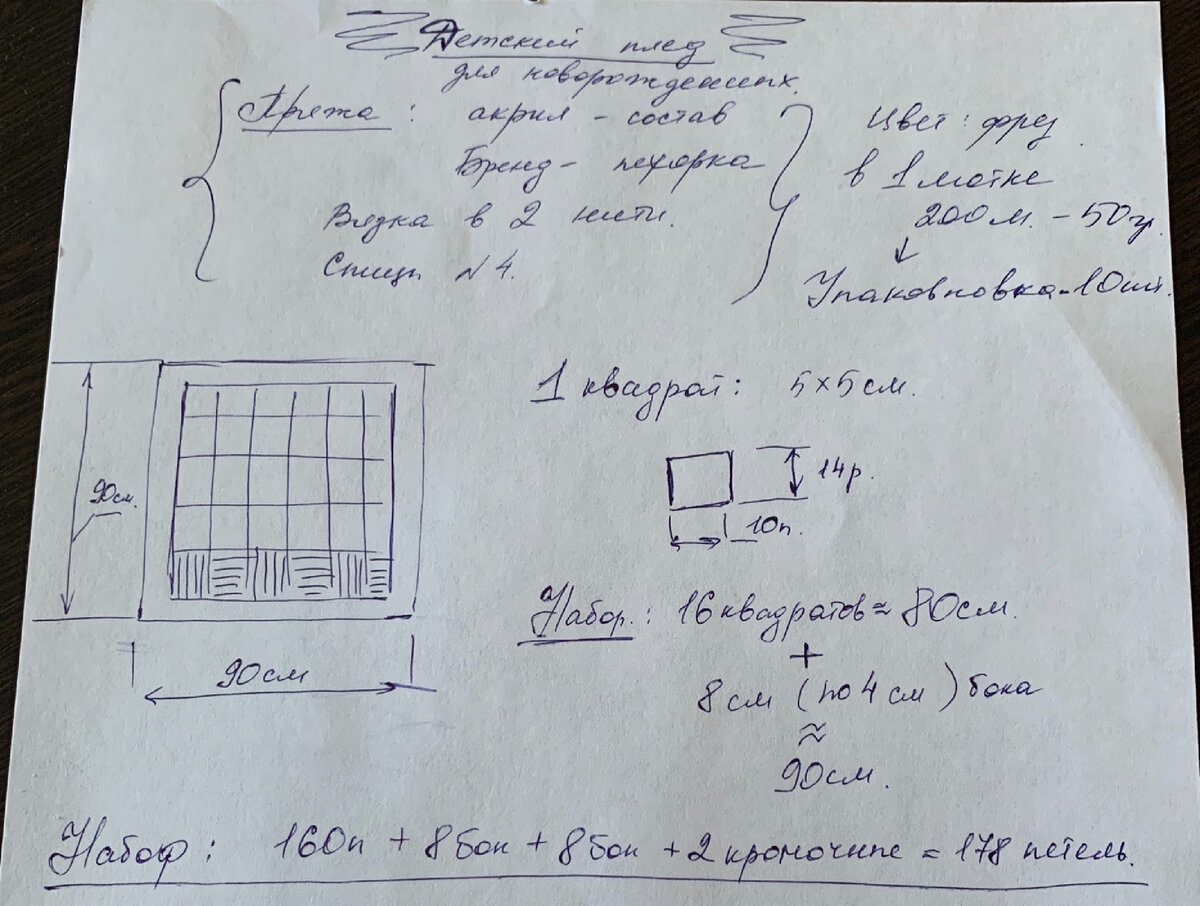 Детский плед
для новорожденных.
Пряжа: акрил - состав
Бренд - пехорка
Вязка в 2 нити.
Спицы N 4.
Цвет: фрез
в 1 мотке
200 м. - 50 гр.
Упаковповка - 10 шт.
1 квадрат: 5×5 см.
14 р.
10 п.
90 см.
90 см
Набор: 16 квадратов ≈ 80 см.
+
8 см (по 4 см) бока
≈
90 см.
Набор: 160п + 8 бок + 8 бок + 2 кромочные = 178 петель.